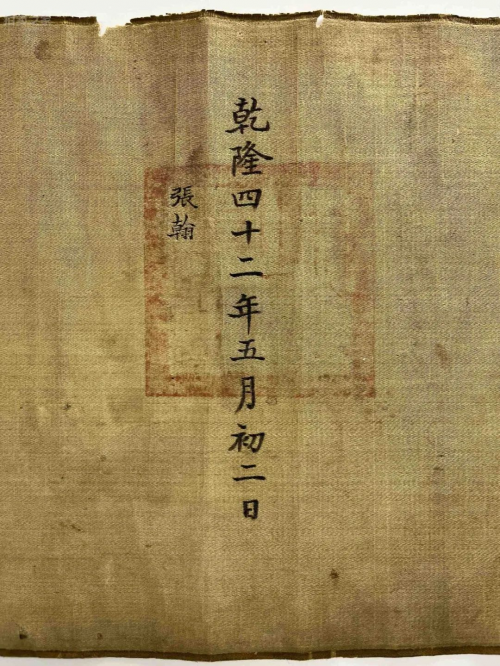 乾隆四十二年五月初二日
張翰